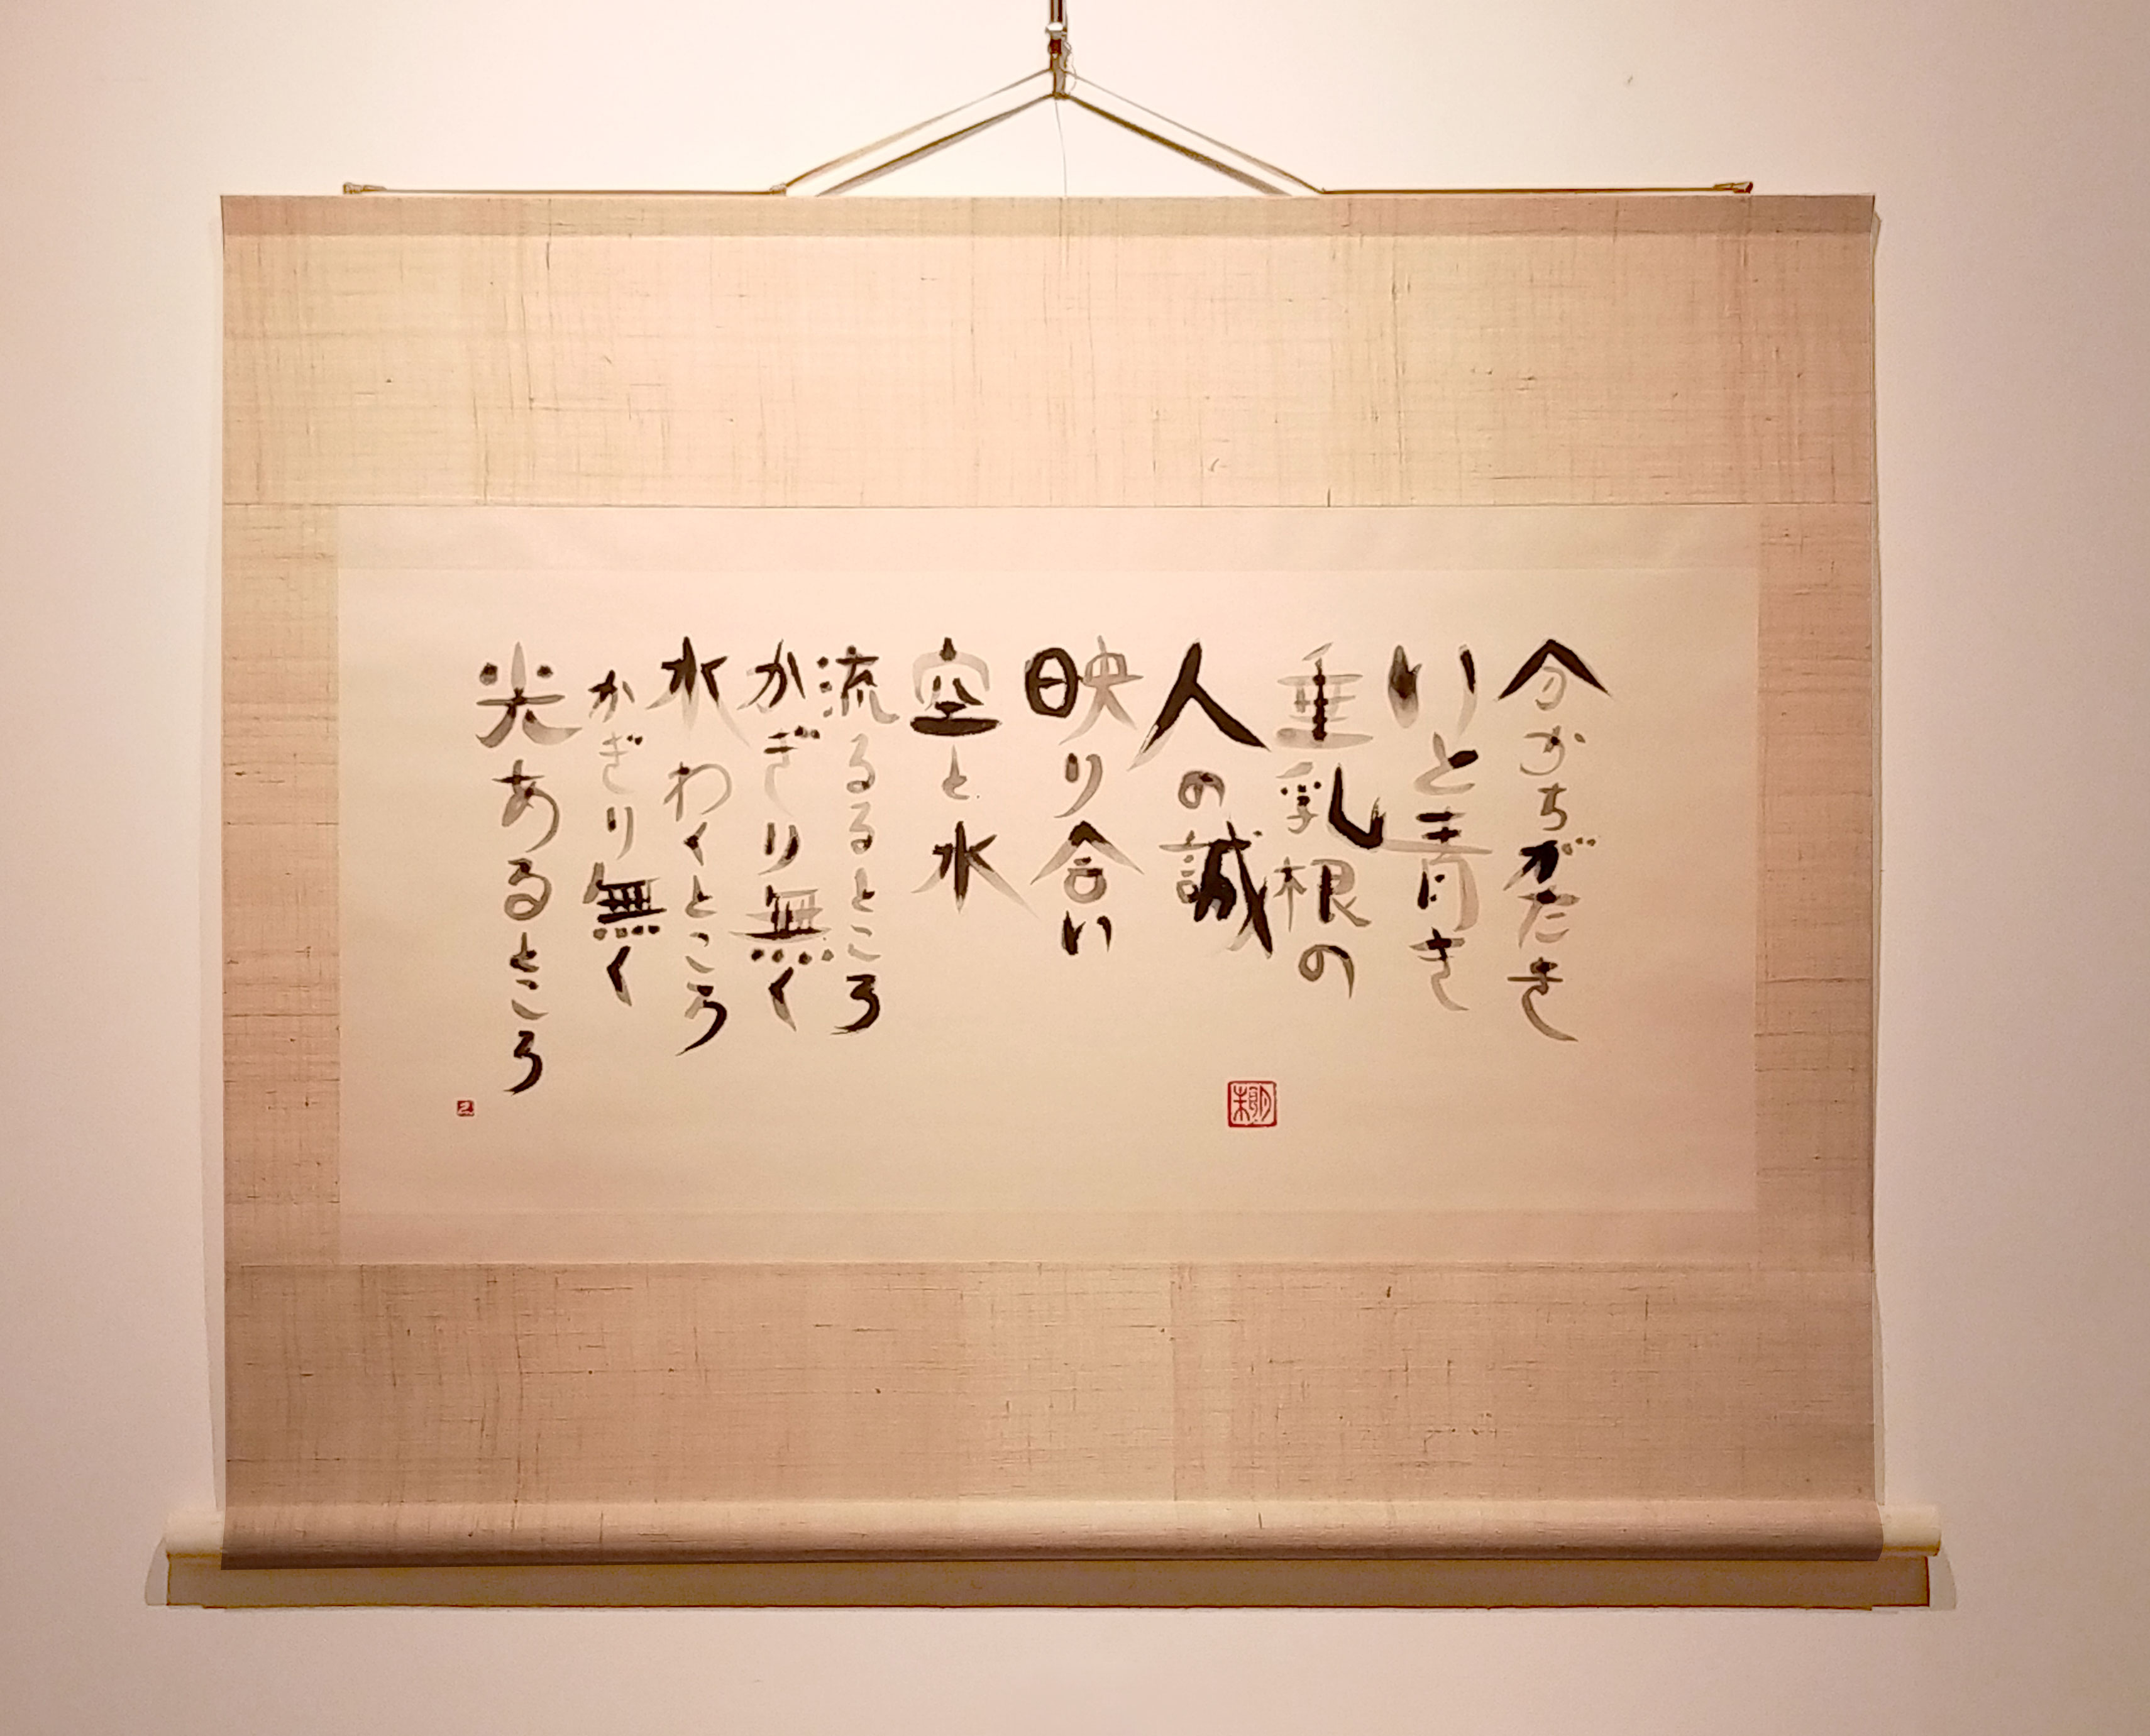 分かちがたき
いと青き
垂乳根の
人の誠
映り合い
空と水
流るるところ
かぎり無く
水わくところ
かぎり無く
光あるところ